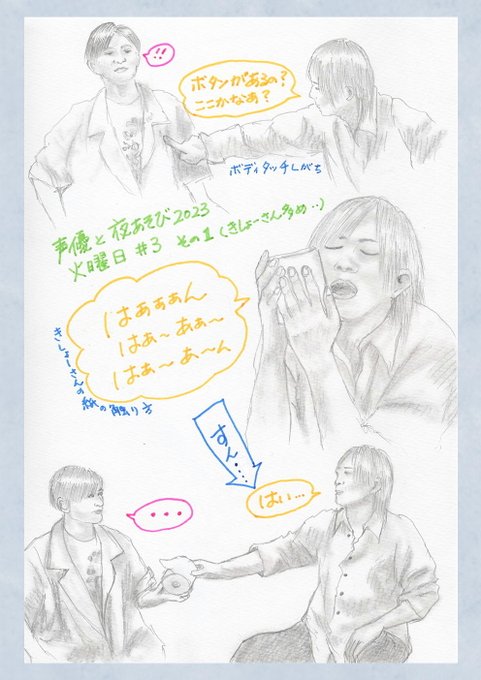 !!
ボタンがあるの?
ここかなあ?
ボディタッチしがち
声優と夜あそび2023
火曜日 #3 その1(きしょーさん多め‥)
はぁぁぁん
はぁ〜あぁ〜
はぁ〜あ〜ん
きしょーさんの紙の触り方
すん・・・
はい…
・・・